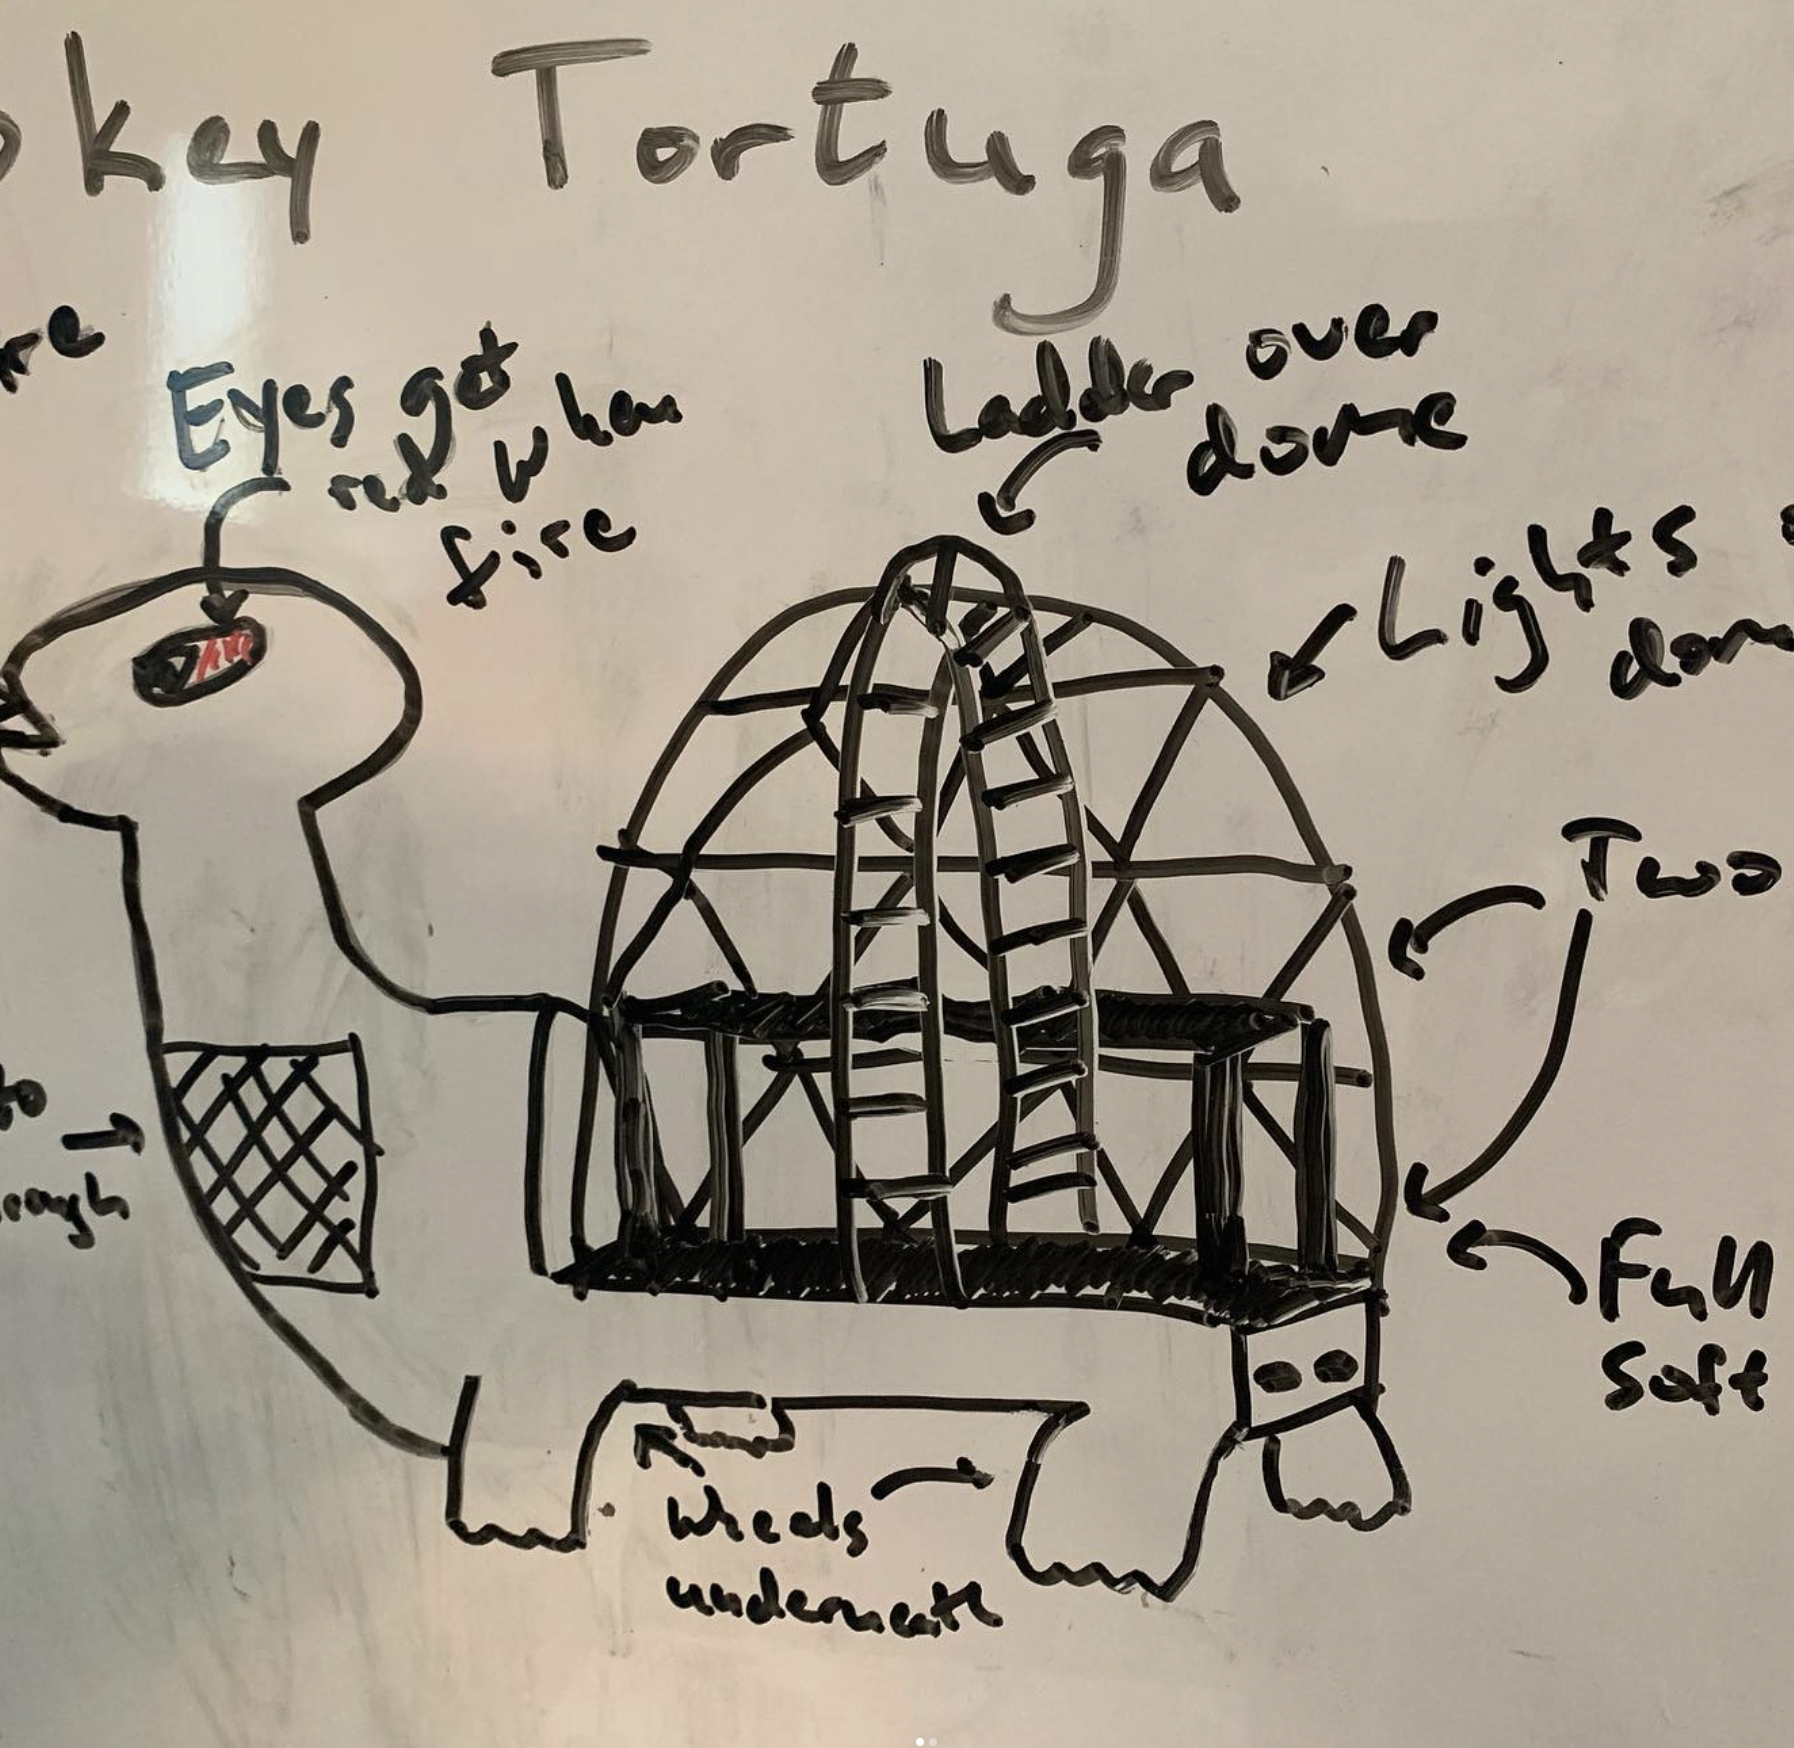 okey Tortuga
re
Eyes get
red when
fire
Ladder over
dome
Lights
dom
Two
to
rough
Full
Soft
Wheels
underneath